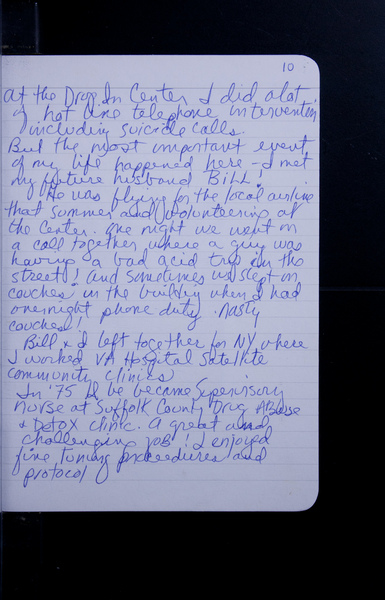 10
at the Drop In Center I did a lot
of hot line telephone intervention
including suicide calls.
But the most important event
of my life happened here - I met
my future husband Bill!
He was flying for the local airline
that summer and volunteering at
the center. One night we went on
a call together where a guy was
having a bad acid trip in the
street! And sometimes we slept on
couches in the building when I had
overnight phone duty. Nasty
couches!
Bill & I left together for NY where
I worked VA Hospital Satellite
community clinics
In '75 I'd be became Supervisory
Nurse at Suffolk County Drug Abuse
& Detox clinic. A great and
challenging job! I enjoyed
fine tuning proceedures and
protocol